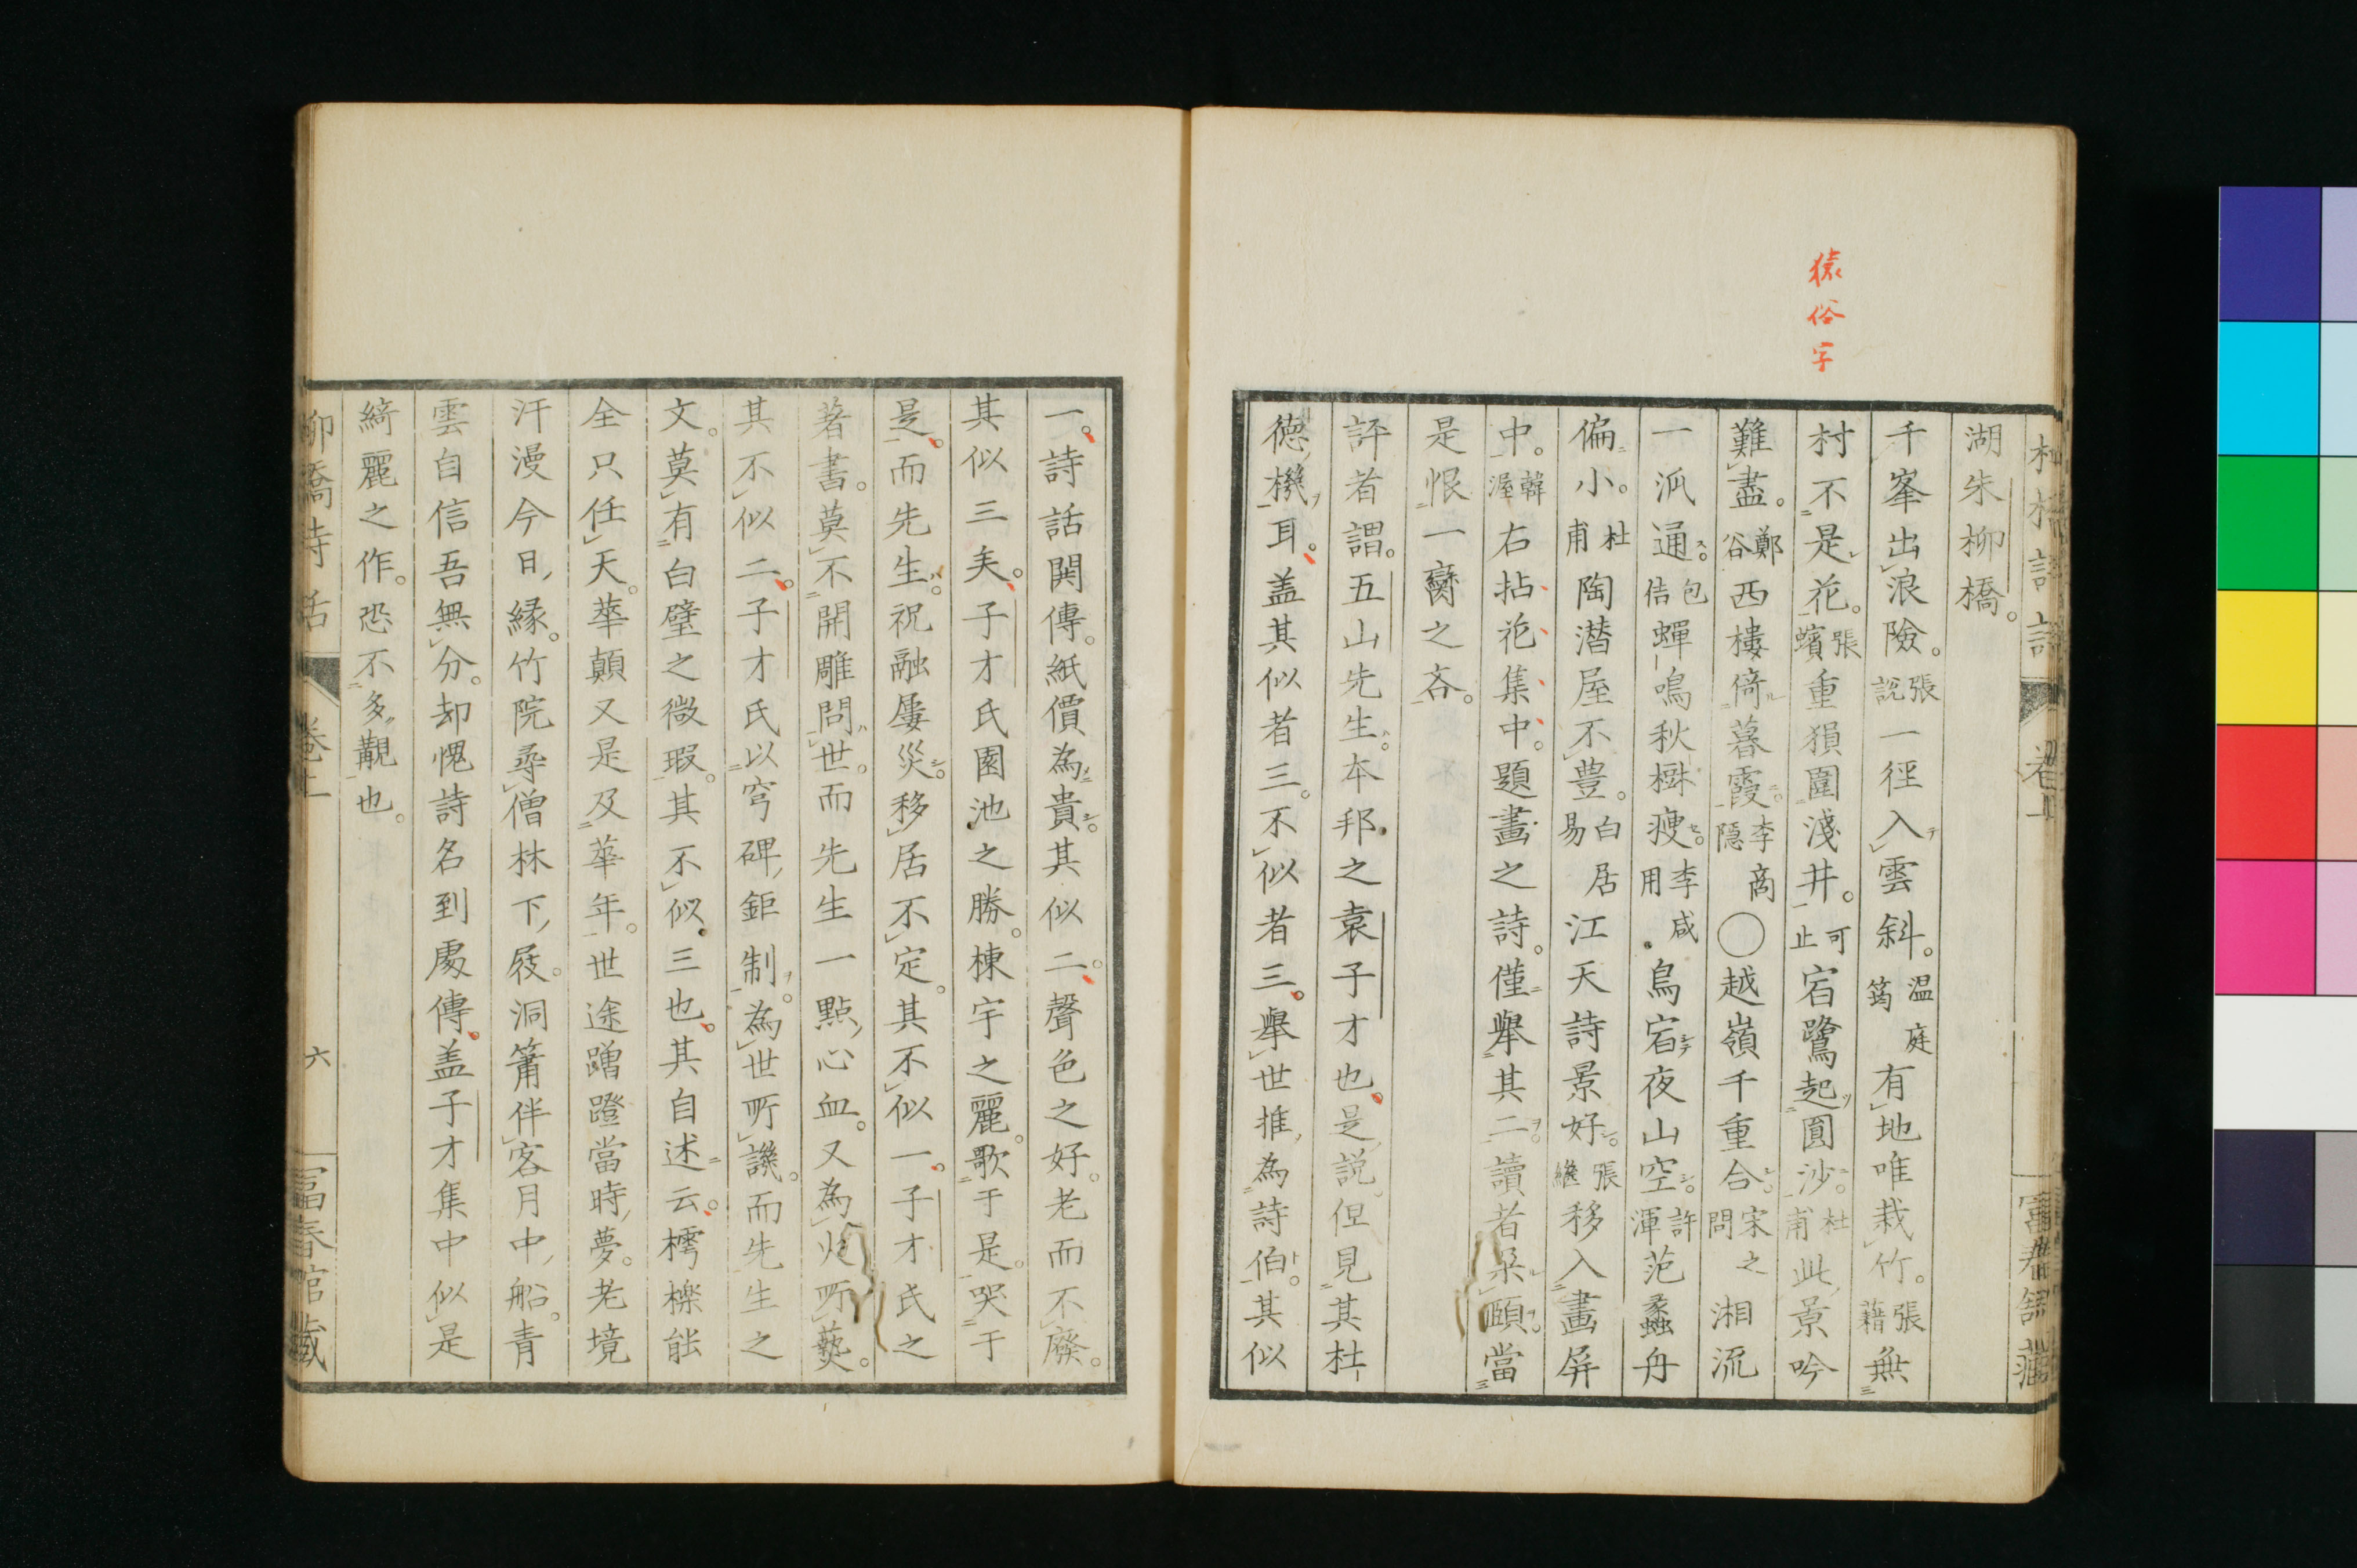 猿俗字
湖朱柳橋。
千峯出浪險。張説一徑入雲斜。温庭筠有地唯栽竹。張藉無
村不是花。張蠙重狽圍淺井。可止宿鷺起圓沙。杜甫此景吟
難盡。鄭谷西樓倚暮霞。李商隱○越嶺千重合。宋之問湘流
一泒通。包佶蟬鳴秋樹瘦。李咸用鳥宿夜山空。許渾范蠡舟
偏小。杜甫陶潜屋不豊。白居易江天詩景好。張繼移入畫屏
中。韓渥右拈花集中。題畫之詩。僅舉其二。讀者朶頤。當
是恨一臠之吝。
評者謂。五山先生。本邦之袁子才也。是説。但見其杜
德機耳。盖其似者三。不似者三。舉世推為詩伯。其似
一。詩話開傳。紙價為貴。其似二。聲色之好。老而不廢。
其似三矣。子才氏園池之勝。棟宇之麗。歌于是。哭于
是。而先生。祝融屢災。移居不定。其不似一。子才氏之
著書。莫不開雕問世。而先生一點心血。又為火所爇。
其不似二。子才氏以穹碑鉅制。為世所譏。而先生之
文。莫有白璧之微瑕。其不似三也。其自述云。樗櫟能
全只任天。華顛又是及華年。世途蹭蹬當時夢。老境
汗漫今日緣。竹院尋僧林下屐。洞簫伴客月中船。青
雲自信吾無分。却愧詩名到處傳。盖子才集中似是
綺麗之作。恐不多覯也。
柳橋詩話
卷上
六
富春館藏